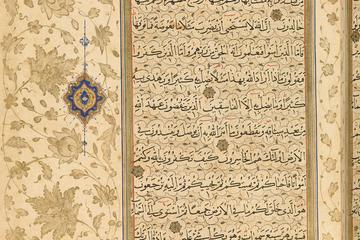 خالدون ان الله لا يستحيي ان يضرب مثلا ما بعوضة فما فوقها
فاما الذين آمنوا فيعلمون انه الحق من ربهم واما الذين كفروا
فيقولون ماذا اراد الله بهذا مثلا يضل به كثيرا ويهدي به
كثيرا وما يضل به الا الفاسقين الذين ينقضون عهد الله
من بعد ميثاقه ويقطعون ما امر الله به ان يوصل ويفسدون في
الارض اولئك هم الخاسرون كيف تكفرون بالله وكنتم
امواتا فاحياكم ثم يميتكم ثم يحييكم ثم اليه ترجعون
هو الذي خلق لكم ما في الارض جميعا ثم استوى الى السماء
سبع سموات وهو بكل